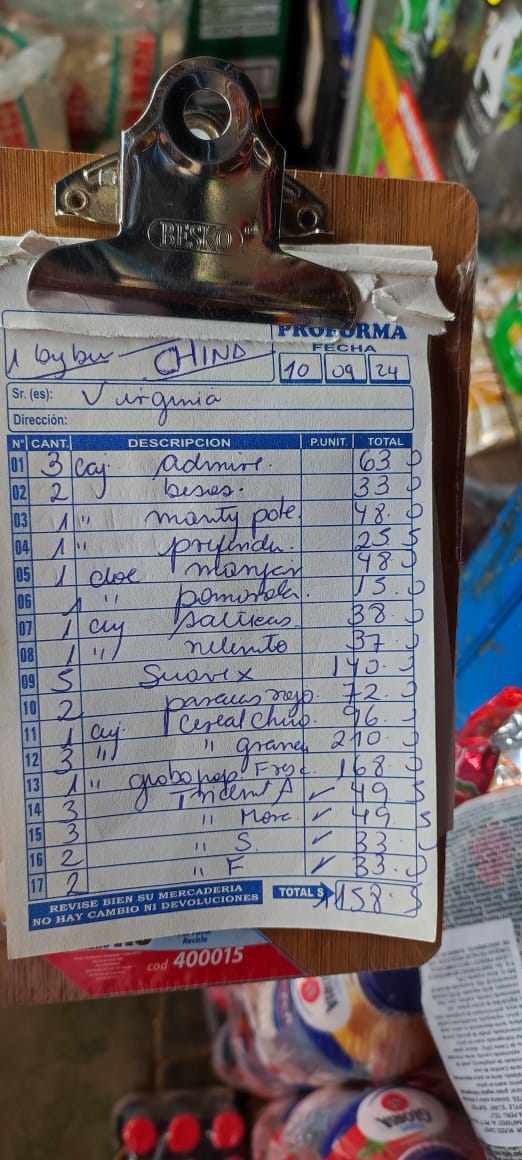 BESKO
PROFORMA
FECHA
1 bybu CHINO
10 09 24
Sr. (es): Virginia
Dirección:
N° CANT. DESCRIPCION P.UNIT. TOTAL
01 3 caj. admire. 63 0
02 2 beses. 33 0
03 1 " manty pote. 48.0
04 1 " 25 5
05 1 doc manjar 48.0
06 1 " pomarola. 15.0
07 1 caj salticas. 38.0
08 1 " rellenito 37.0
09 5 Suavex 140.0
10 2 paracas rojo. 72.0
11 1 caj. Cereal Chino. 96.0
12 3 " " grande 210.0
13 1 " globo pop Fresc. 168.0
14 3 Trident A ✓ 49 5
15 3 " Mora. ✓ 49.5
16 2 " S. ✓ 33.0
17 2 " F ✓ 33.0
REVISE BIEN SU MERCADERIA
NO HAY CAMBIO NI DEVOLUCIONES
TOTAL $ 1158.5
Recicle
cod 400015
GLORIA
GLORIA